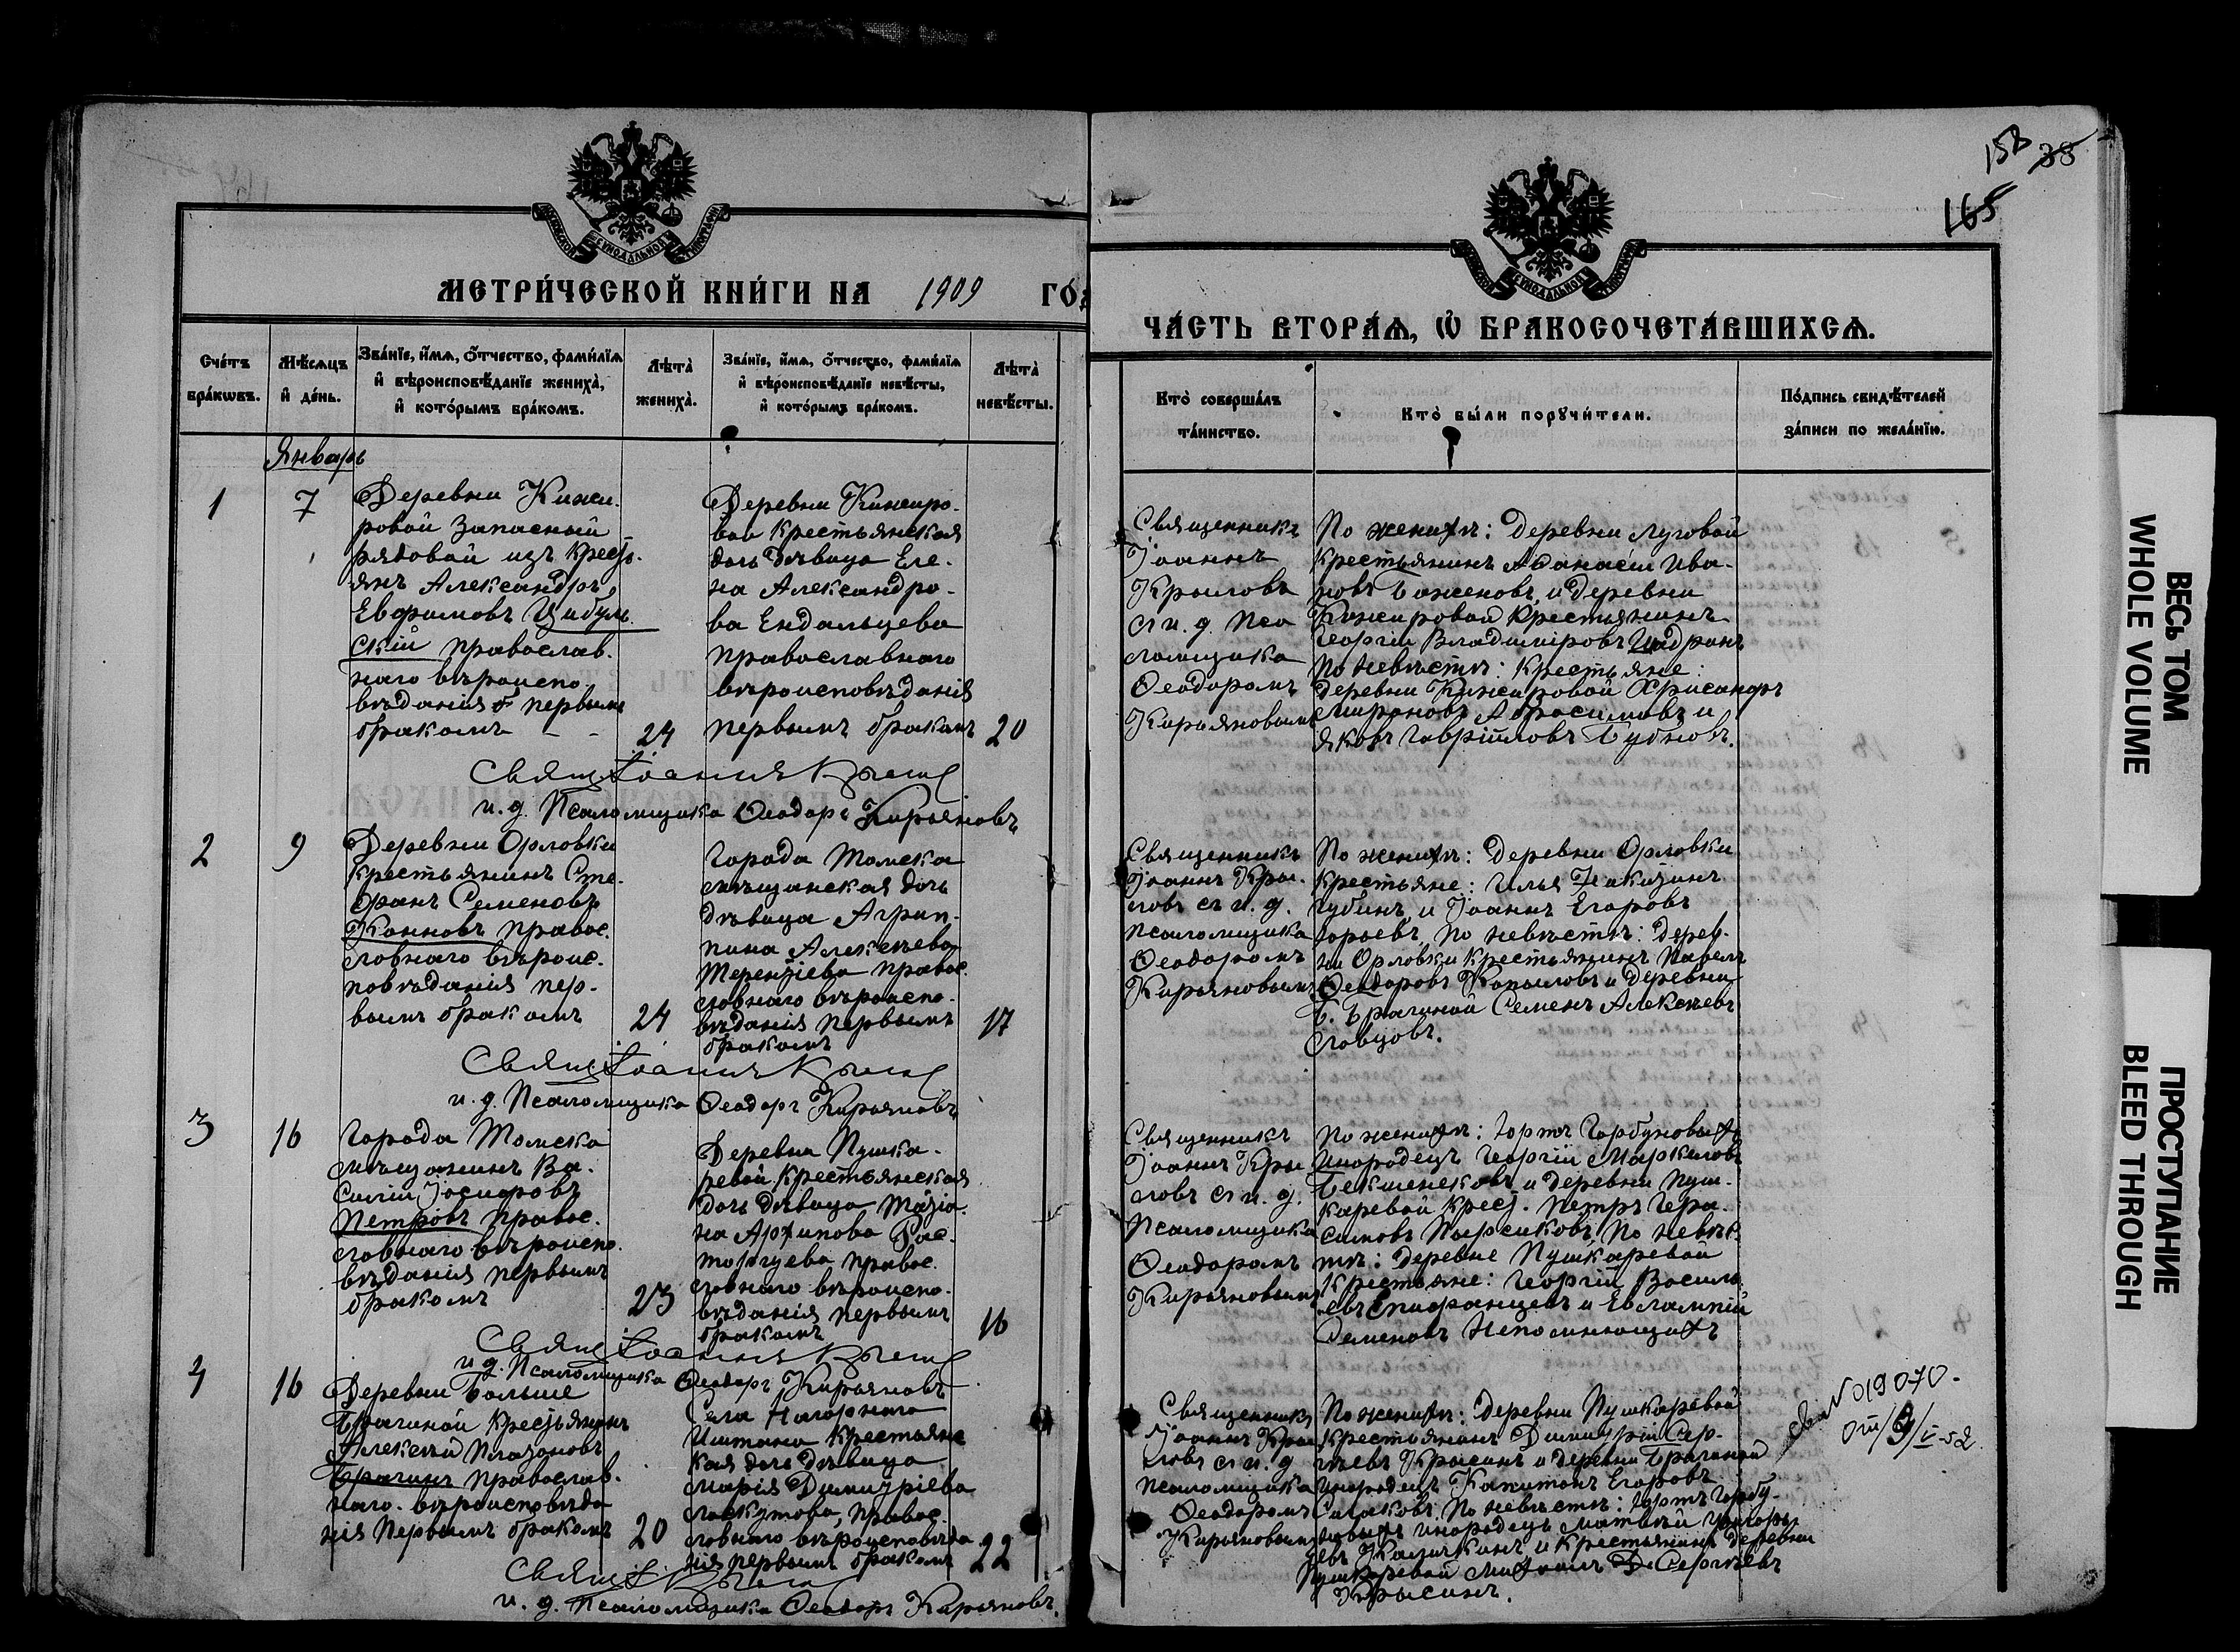 153 38
165
МЕТРИ́ЧЕСКОЙ КНИ́ГИ НА 1909 ГО́Д
ЧА́СТЬ ВТОРА́Ѧ, Ѡ҆ БРАКОСОЧЕТА́ВШИХСѦ.
Сче́тъ бра́кѡвъ.
Мѣ́сѧцъ и҆ де́нь.
Зва́нїе, и҆́мѧ, ѻ҆́тчество, фами́лїѧ
и҆ вѣроисповѣ́данїе жениха̀,
и҆ кото́рымъ бра́комъ.
Лѣта̀ жениха̀.
Зва́нїе, и҆́мѧ, ѻ҆́тчество, фами́лїѧ
и҆ вѣроисповѣ́данїе невѣ́сты,
и҆ кото́рымъ бра́комъ.
Лѣта̀ невѣ́сты.
Кто̀ соверша́лъ та́инство.
Кто̀ бы́ли порꙋчи́тели.
По́дпись свидѣ́телей за́писи по жела́нїю.
Январь
1
7
Деревни Кижи-
ровой запасный
рядовой изъ кресть-
янъ Александръ
Евфимовъ Цибуль-
скій православ-
наго вѣроиспо-
вѣданія первымъ
бракомъ
24
Деревни Кижиро-
вой крестьянская
дочь дѣвица Еле-
на Александро-
ва Ендальцева
православнаго
вѣроисповѣданія
первымъ бракомъ
20
Священникъ
Іоаннъ
Крыловъ
съ и. д. Пса
ломщика
Ѳеодоромъ
Кирьяновымъ
По женихѣ: деревни Луговой
крестьянинъ Аѳанасій Ива-
новъ Баженовъ, и деревни
Кижировой крестьянинъ
Георгій Владиміровъ Шадринъ
По невѣстѣ: крестьяне:
деревни Кижировой Хрисанфъ
Мироновъ Абросимовъ и
Яковъ Гавріиловъ Бубновъ.
Свящ. Іоаннъ Крыловъ
и. д. Псаломщика Ѳеодоръ Кирьяновъ
2
9
Деревни Орловки
крестьянинъ Сте-
фанъ Семеновъ
Конновъ правос-
лавнаго вѣроис-
повѣданія пер-
вымъ бракомъ
24
Города Томска
мѣщанская дочь
дѣвица Агрип-
пина Алексѣева
Терентіева правос-
лавнаго вѣроиспо-
вѣданія первымъ
бракомъ
17
Священникъ
Іоаннъ Кры-
ловъ съ и. д.
псаломщика
Ѳеодоромъ
Кирьяновымъ
По женихѣ: деревни Орловки
крестьяне: Илья
Губинъ, и Іоаннъ Егоровъ
Юрьевъ, по невѣстѣ: дерев-
ни Орловки крестьянинъ Павелъ
Ѳеодоровъ Копыловъ и деревни
Б. Брагиной Семенъ Алексѣевъ
Ловцовъ.
Свящ. Іоаннъ Крыловъ
и. д. Псаломщика Ѳеодоръ Кирьяновъ
3
16
Города Томска
мѣщанинъ Ва-
силій Іосифовъ
Петровъ правос-
лавнаго вѣроиспо-
вѣданія первымъ
бракомъ
23
Деревни Пушка-
ревой крестьянская
дочь дѣвица Татіа-
на Архипова Рас-
торгуева правос-
лавнаго вѣроиспо-
вѣданія первымъ
бракомъ
16
Священникъ
Іоаннъ Кры
ловъ съ и. д.
Псаломщика
Ѳеодоромъ
Кирьяновымъ
По женихѣ: Юртъ Горбуновыхъ
инородецъ Георгій Маркиловъ
Бекшенековъ и деревни Пуш-
каревой крест. Петръ Гера-
симовъ Парсиковъ, По невѣс-
тѣ: деревне Пушкаревой
крестьяне: Георгій Василь-
евъ Епифанцевъ и Евлампій
Семеновъ Непомнющихъ
Свящ. Іоаннъ Крыловъ
и. д. Псаломщика Ѳеодоръ Кирьяновъ
4
16
Деревни Больше
Брагиной крестьянинъ
Алексѣй Платоновъ
Брагинъ православ-
наго вѣроисповѣда
нія первымъ бракомъ
20
Села Нагорнаго
Иштана крестьянс
кая дочь дѣвица
Марія Димитріева
Лоскутова, правос-
лавнаго вѣроисповѣда
нія первымъ бракомъ
22
Священникъ
Іоаннъ Кры
ловъ съ и. д
псаломщика
Ѳеодоромъ
Кирьяновымъ
По женихѣ: деревни Пушкаревой
крестьянинъ Димитрій Сер-
гѣевъ Крысинъ и деревни Брагиной
инородецъ Капитонъ Егоровъ
Силаковъ. По невѣстѣ: Юртъ Горбу-
новыхъ инородецъ Матвѣй Григорь-
евъ Калычкинъ и крестьянинъ деревни
Пушкаревой Михаилъ Сергѣевъ
Крысинъ.
свид N 019070.
от/9/V-52.
Свящ. І. Крыловъ
и. д. Псаломщика Ѳеодоръ Кирьяновъ.
ВЕСЬ ТОМ
WHOLE VOLUME
ПРОСТУПАНИЕ
BLEED THROUGH